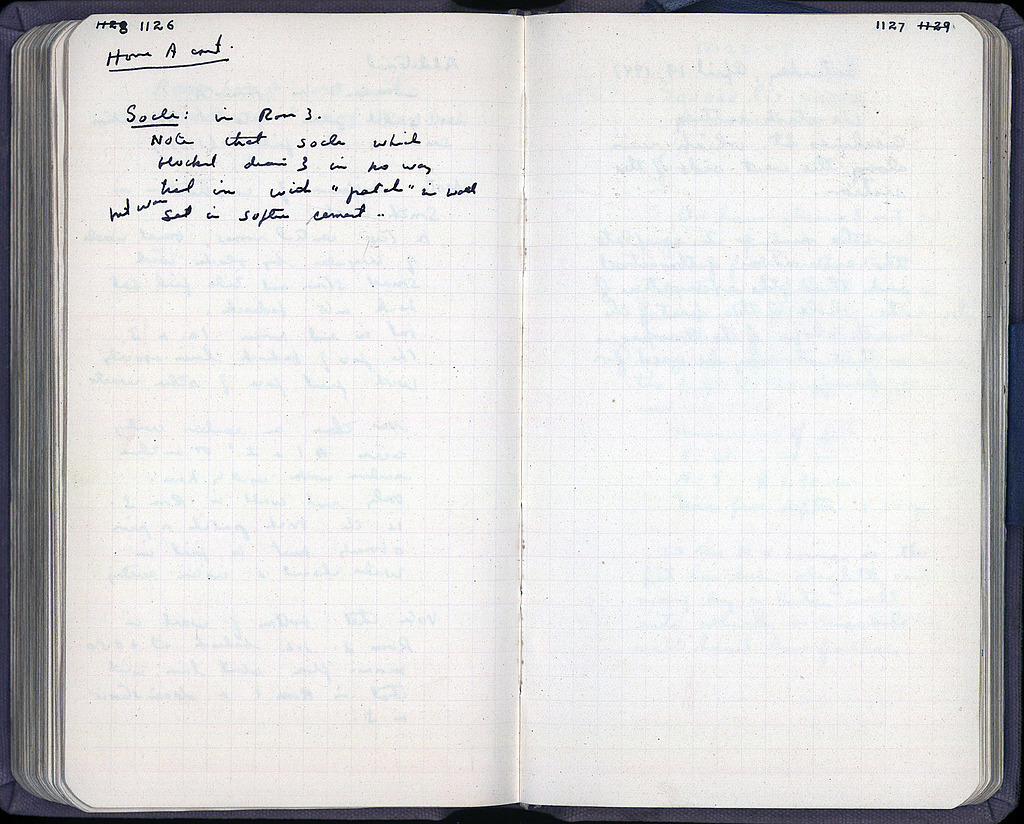 1128 1126
House A cont.
Socle: in Room 3.
Note that socle which
blocked drain 3 in no way
tied in with "patch" in wall
but was set in softer cement..
1127 1129